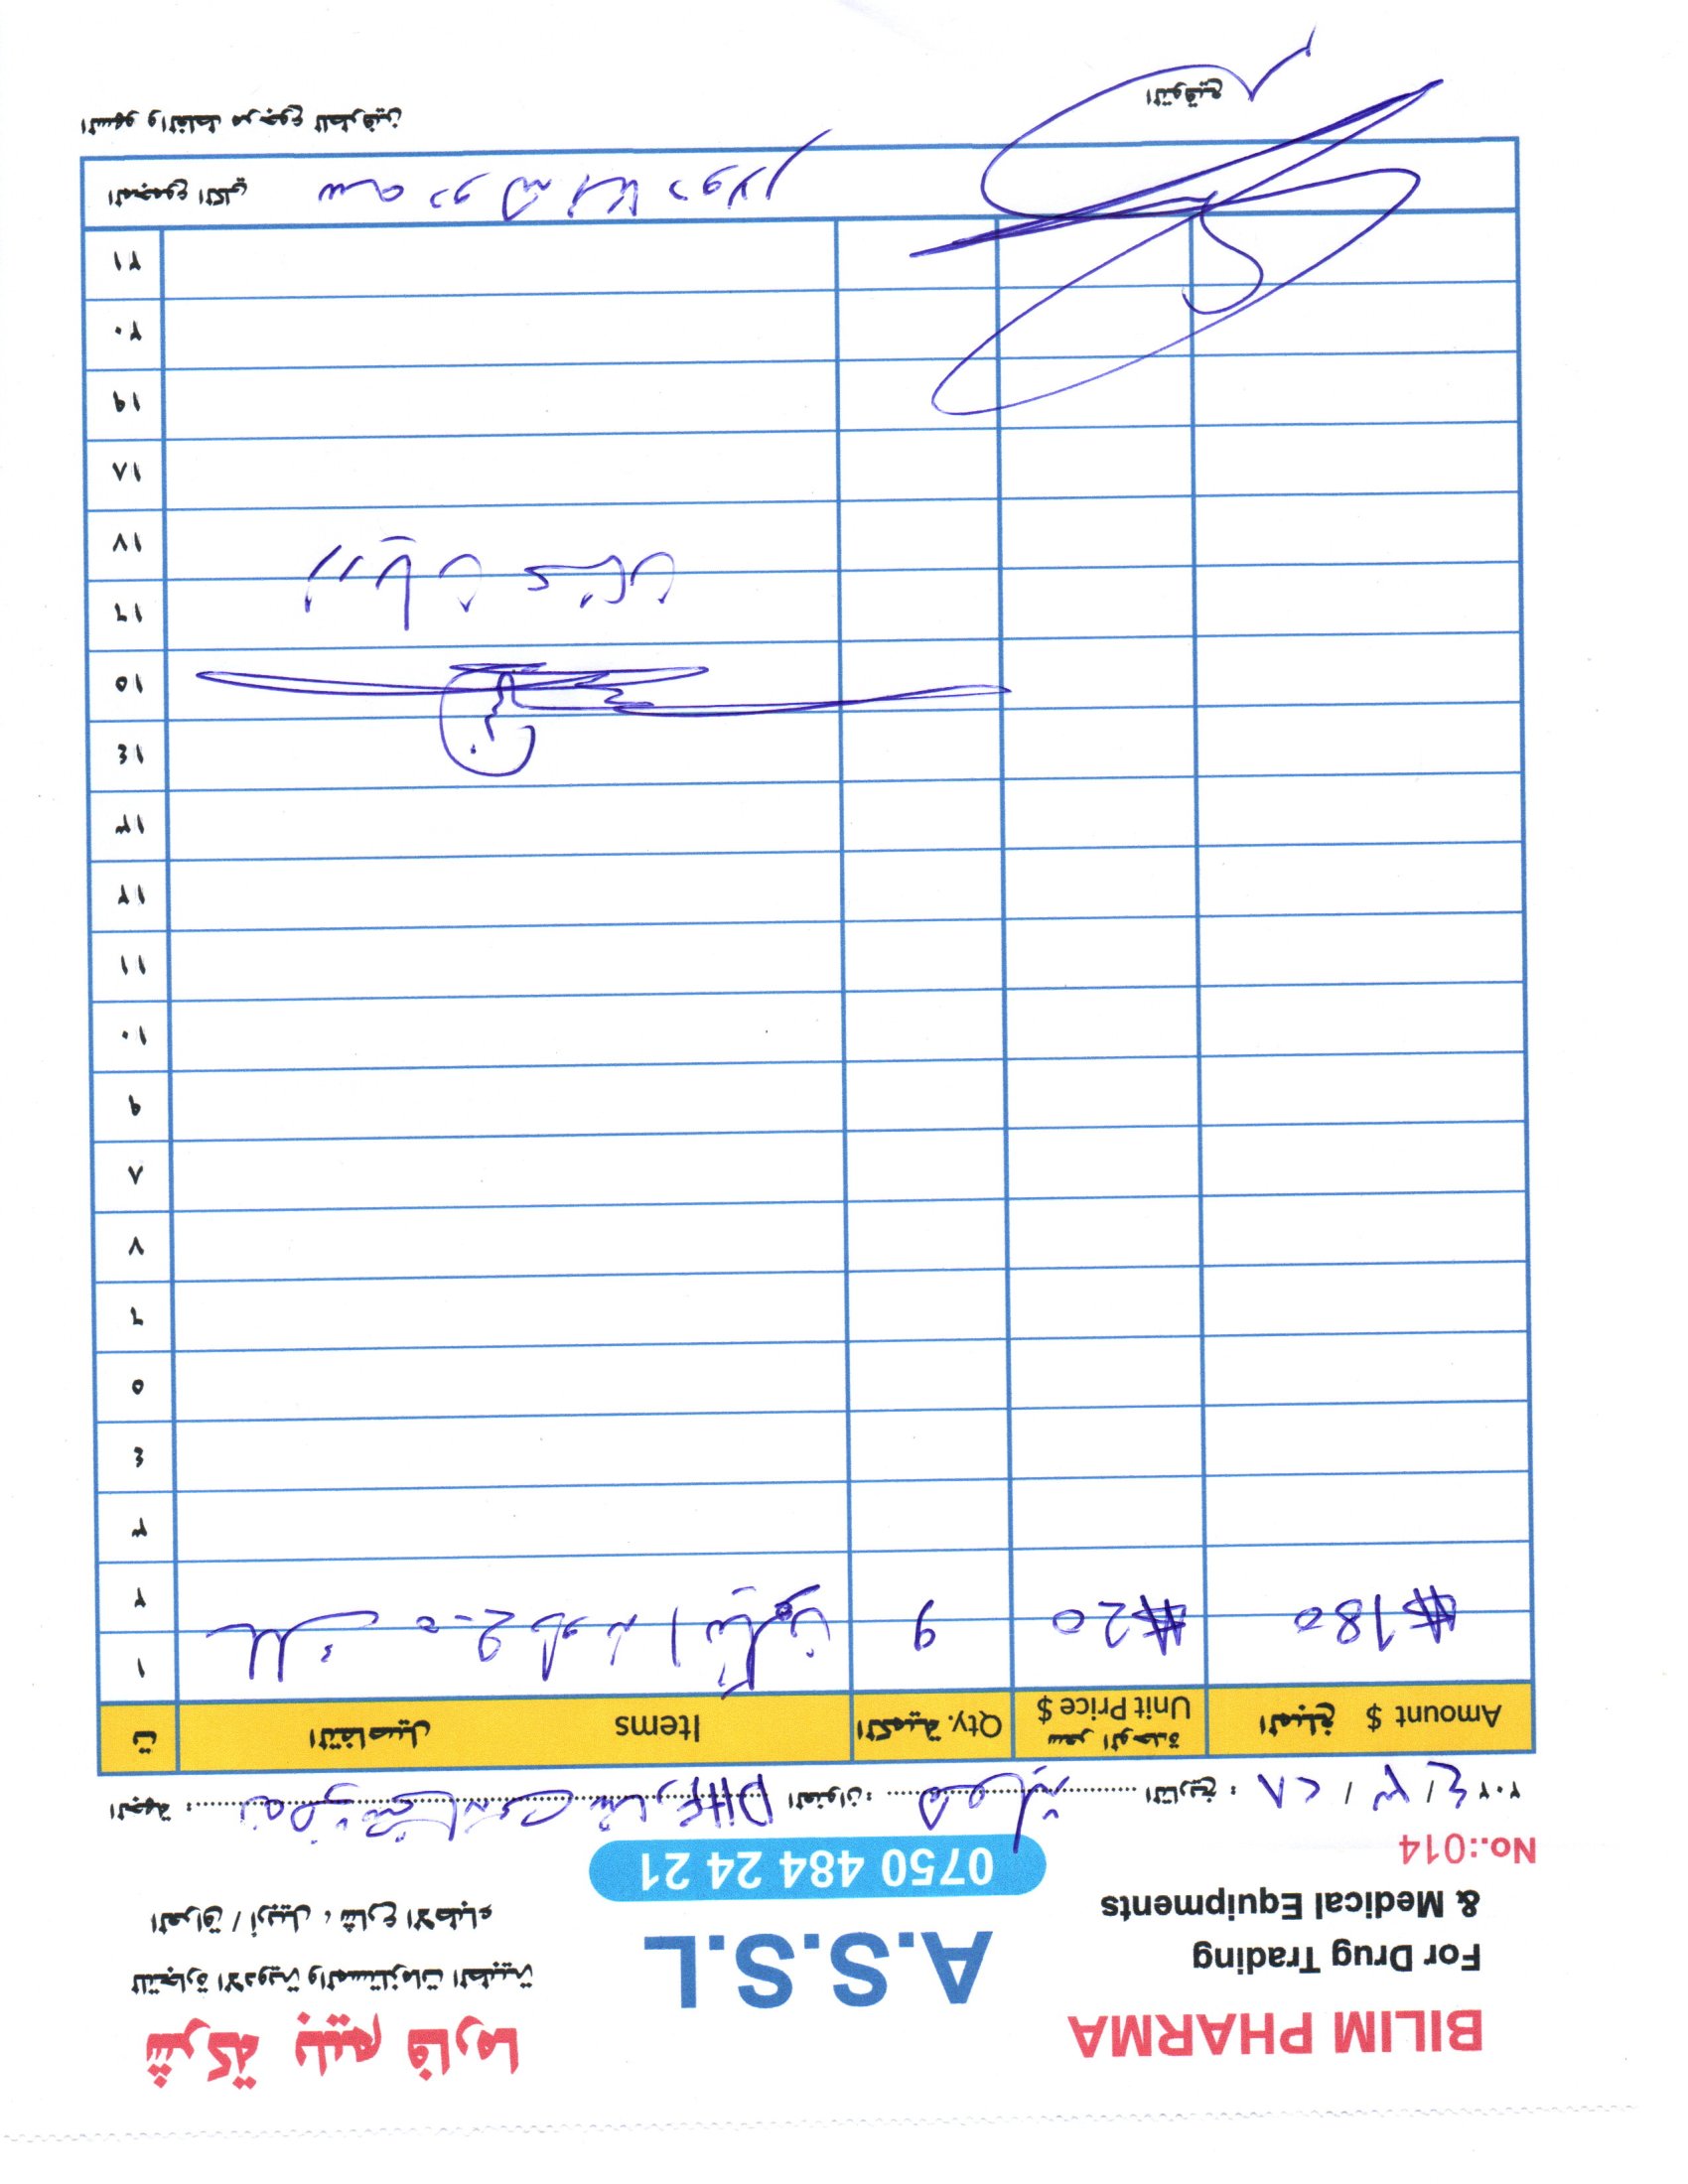 BILIM PHARMA
For Drug Trading
& Medical Equipments
A.S.S.L
0750 484 24 21
شركة بليم فارما
للتجارة الادوية والمستلزمات الطبية
العراق / أربيل ، شارع الاطباء
No.:014
الجهة : شار DHF العنوان: التاريخ : ٢٨ / ٣ / ٢٠٢٤
ت التفاصيل Items الكمية Qty. سعر الوحدة Unit Price $ المبلغ Amount $
١ سلك 2-0 9 $20 $180
٢
٣
٤
٥
٦
٧
٨
٩
١٠
١١
١٢
١٣
١٤
١٥
١٦ زريان عثمان
١٧
١٨
١٩
٢٠
٢١
المجموع الكلي دولار
السهو والغلط مرجوع للطرفين
التوقيع